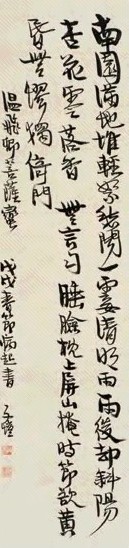 南園滿地堆輕絮愁聞一霎清明雨雨後却斜陽
杏花零落香 無言勻睡臉枕上屏山掩時節欲黃
昏無憀獨倚門
溫飛卿菩薩蠻
戊戌春節病起書